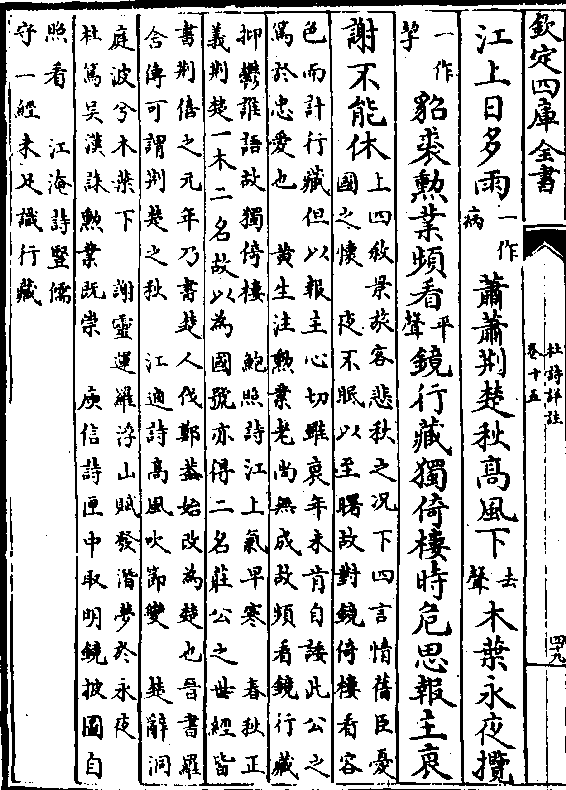 欽定四庫全書
杜詩詳註
卷十五
四九
江上日多雨一作病蕭蕭荆楚秋高風下去聲木葉永夜攬
一作
貂裘勲業頻看平聲鏡行藏獨倚樓時危思報主衰
謝不能休上四敘景旅客悲秋之况下四言情舊臣憂
國之懷 夜不眠以至曙故對鏡倚樓看容
色而計行藏但以報主心切雖衰年未肯自諉此公之
篤於忠愛也 黄生注勲業老尚無成故頻看鏡行藏
抑鬱誰語故獨倚樓 鮑照詩江上氣早寒 春秋正
義荆楚一木二名故以為國號亦得二名莊公之世經皆
書荆僖之元年乃書楚人伐鄭葢始改為楚也晉書羅
含傳可謂荆楚之秋 江逌詩高風吹節變 楚辭洞
庭波兮木葉下 謝靈運羅浮山賦發潛夢於永夜
杜篤吳漢誄勲業既崇 庾信詩匣中取明鏡披圖自
照看 江淹詩豎儒
守一經未足識行藏